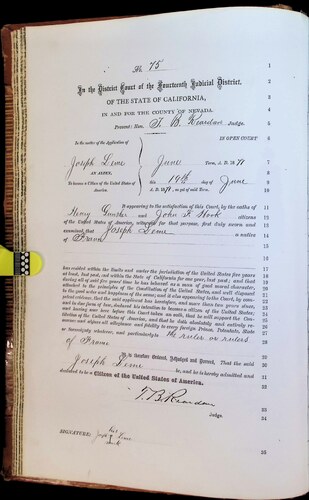 No 75
In the District Court of the Fourteenth Judicial District,
OF THE STATE OF CALIFORNIA,
IN AND FOR THE COUNTY OF NEVADA.
Present: Hon. T. B. Reardan Judge.
In the matter of the Application of
IN OPEN COURT
Joseph
AN ALIEN,
To become a Citizen of the United States of America.
June Term, A. D. 1871
this 19th day of June
A. D. 1871, as yet of said Term.
It appearing to the satisfaction of this Court, by the oaths of
Henry and John F. Hook citizens
of the United States of America, witnesses for that purpose, first duly sworn and
examined, that Joseph a native
of France
has resided within the limits and under the jurisdiction of the United States five years
at least, last past, and within the State of California for one year, last past; and that
during all of said five years' time he has behaved as a man of good moral character,
attached to the principles of the Constitution of the United States, and well disposed
to the good order and happiness of the same; and it also appearing to the Court, by competent evidence, that the said applicant has heretofore, and more than two years since,
and in due form of law, declared his intention to become a citizen of the United States;
and having now here before this Court taken an oath, that he will support the Constitution of the United States of America, and that he doth absolutely and entirely renounce and abjure all allegiance and fidelity to every foreign Prince, Potentate, State
or Sovereignty whatever, and particularly to the ruler or rulers
of France
It is therefore Ordered, Adjudged and Decreed, That the said
Joseph be, and he is hereby admitted and
declared to be a Citizen of the United States of America.
T. B. Reardan
Judge.
SIGNATURE: Joseph his x mark
1
2
3
4
5
6
7
8
9
10
11
12
13
14
15
16
17
18
19
20
21
22
23
24
25
26
27
28
29
30
31
32
33